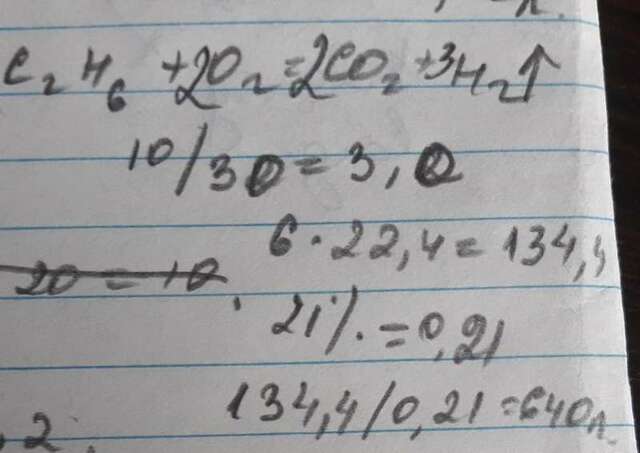 C₂H₆ + 2O₂ = 2CO₂ + 3H₂↑
10/30 = 3,0
6 · 22,4 = 134,4
20 = 10
21% = 0,21
134,4/0,21 = 640л.
,2.